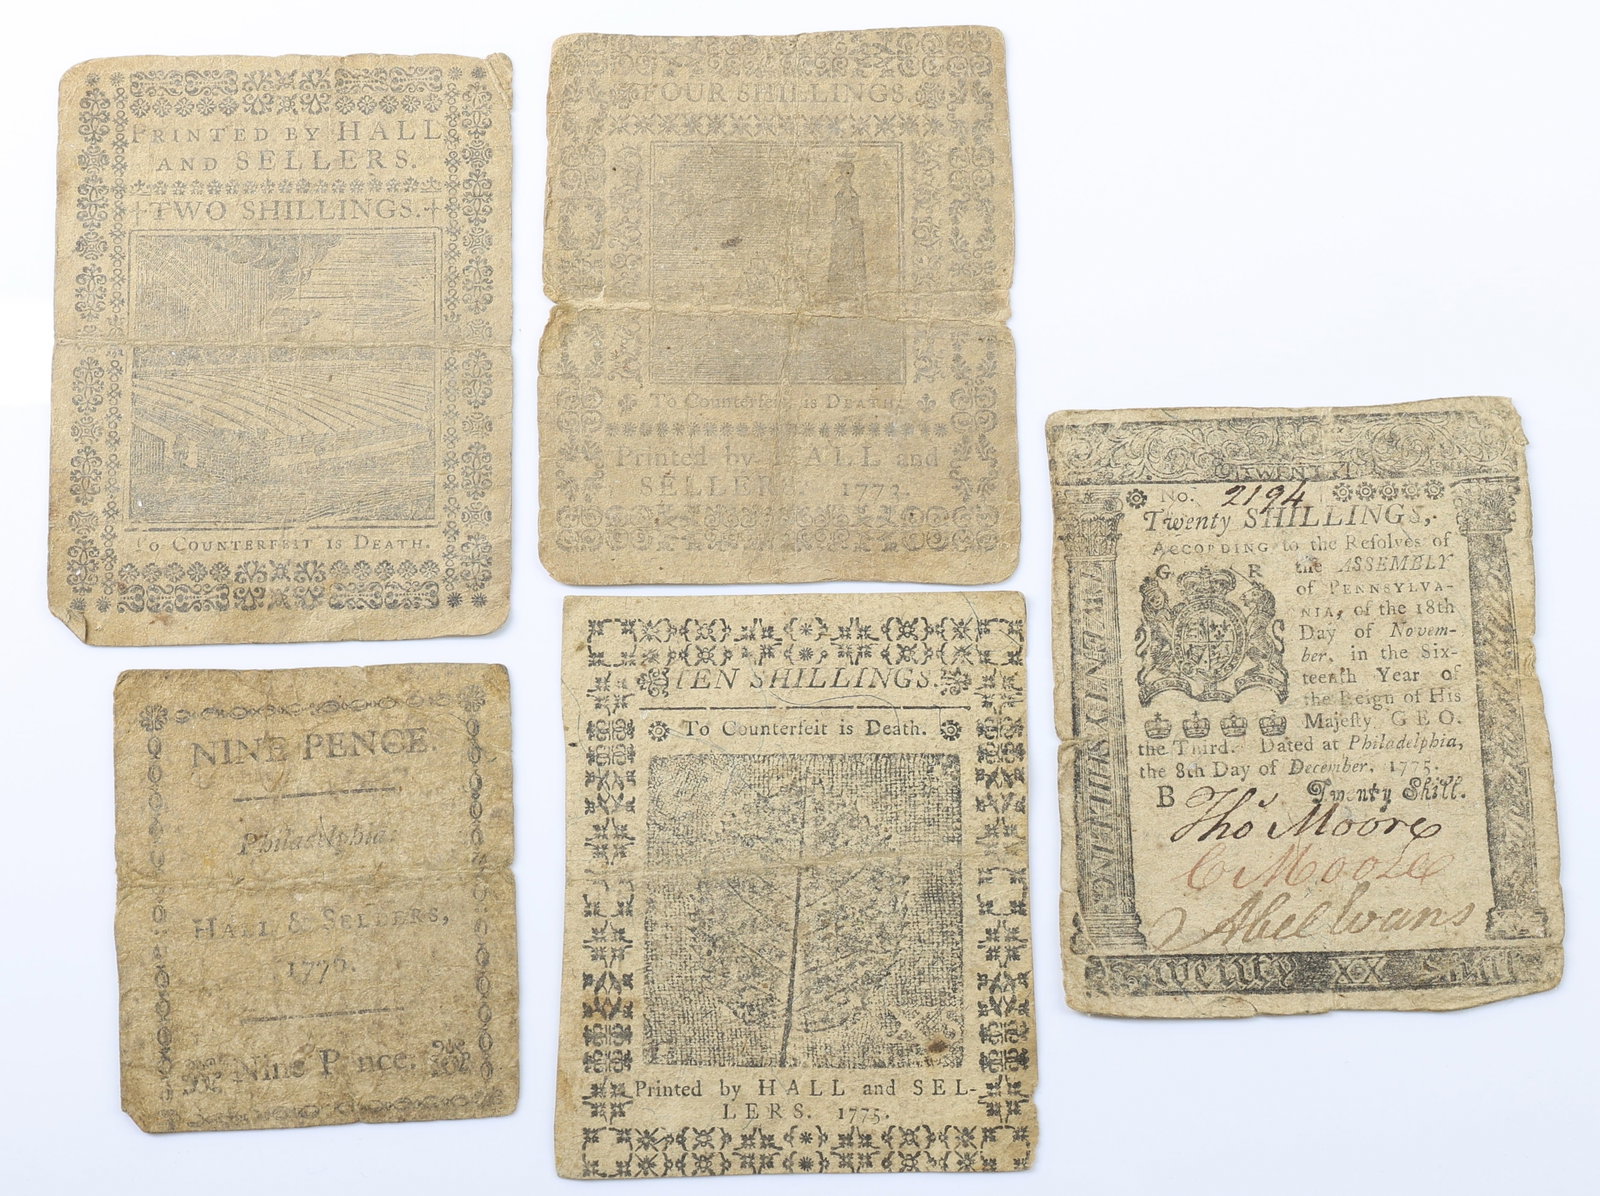 PRINTED BY HALL
AND SELLERS.
TWO SHILLINGS.
To COUNTERFEIT IS DEATH.
FOUR SHILLINGS.
To Counterfeit is DEATH.
Printed by HALL and
SELLERS. 1773.
NINE PENCE.
Philadelphia:
HALL & SELLERS,
1776.
Nine Pence.
TEN SHILLINGS.
To Counterfeit is Death.
Printed by HALL and SEL-
LERS. 1775.
No. 2194
Twenty SHILLINGS,
ACCORDING to the Resolves of
G R
the ASSEMBLY
of PENNSYLVA-
NIA, of the 18th
Day of Novem-
ber, in the Six-
teenth Year of
the Reign of His
Majesty GEO.
the Third. Dated at Philadelphia,
the 8th Day of December, 1775.
B Twenty Shill.
Tho Moore
C Moore
Abel Evans
Twenty XX Shill
TWENTY SHILLING